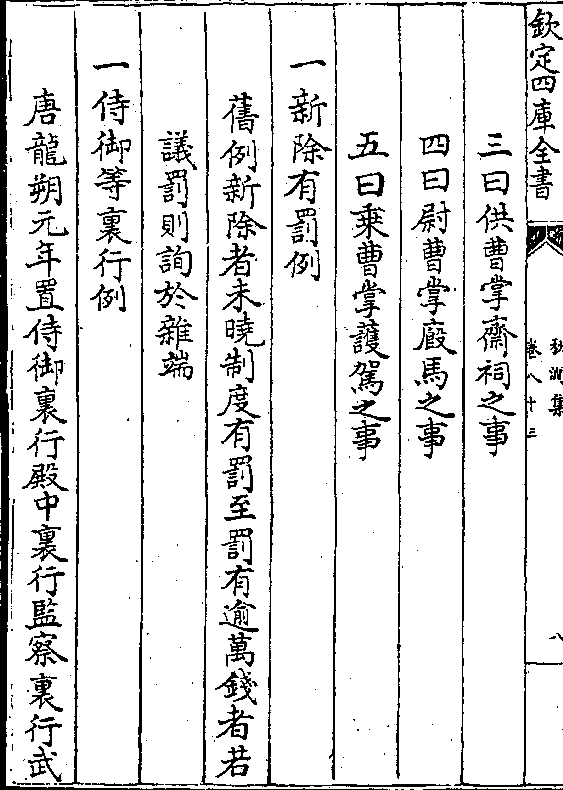 欽定四庫全書
秋澗集
卷八十三
八
三曰供曹掌齋祠之事
四曰尉曹掌廄馬之事
五曰乘曹掌護駕之事
一新除有罰例
舊例新除者未曉制度有罰至罰有逾萬錢者若
議罰則詢於雜端
一侍御等裏行例
唐龍朔元年置侍御裏行殿中裏行監察裏行武